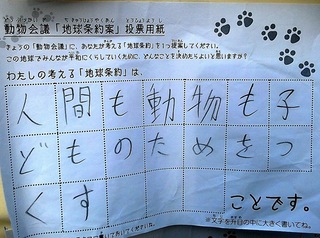 動物会議「地球条約案」投票用紙
きょうの「動物会議」に、あなたが考える「地球条約」を1つ提案してください。
この地球でみんなが平和にくらしていくために、どんなことを決めたらよいと思いますか?
わたしの考える「地球条約」は、
人間も動物も子
どものためをつ
くす
ことです。
※文字を枡目の中に大きく書いてね。